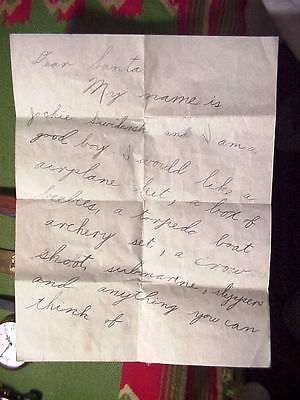 Dear Santa
My name is
Jackie and I am a
good boy I would like a
airplane kit, a box of
a torpedo boat
archery set, a crow
shoot, submarine, slippers
and anything you can
think of.